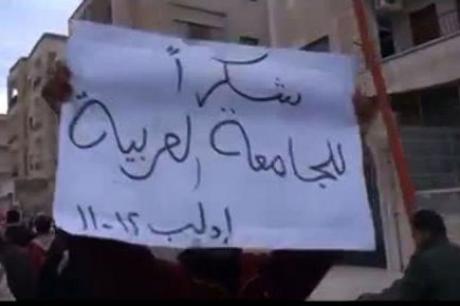 شكراً
للجامعة العربية
إدلب ١٢-١١